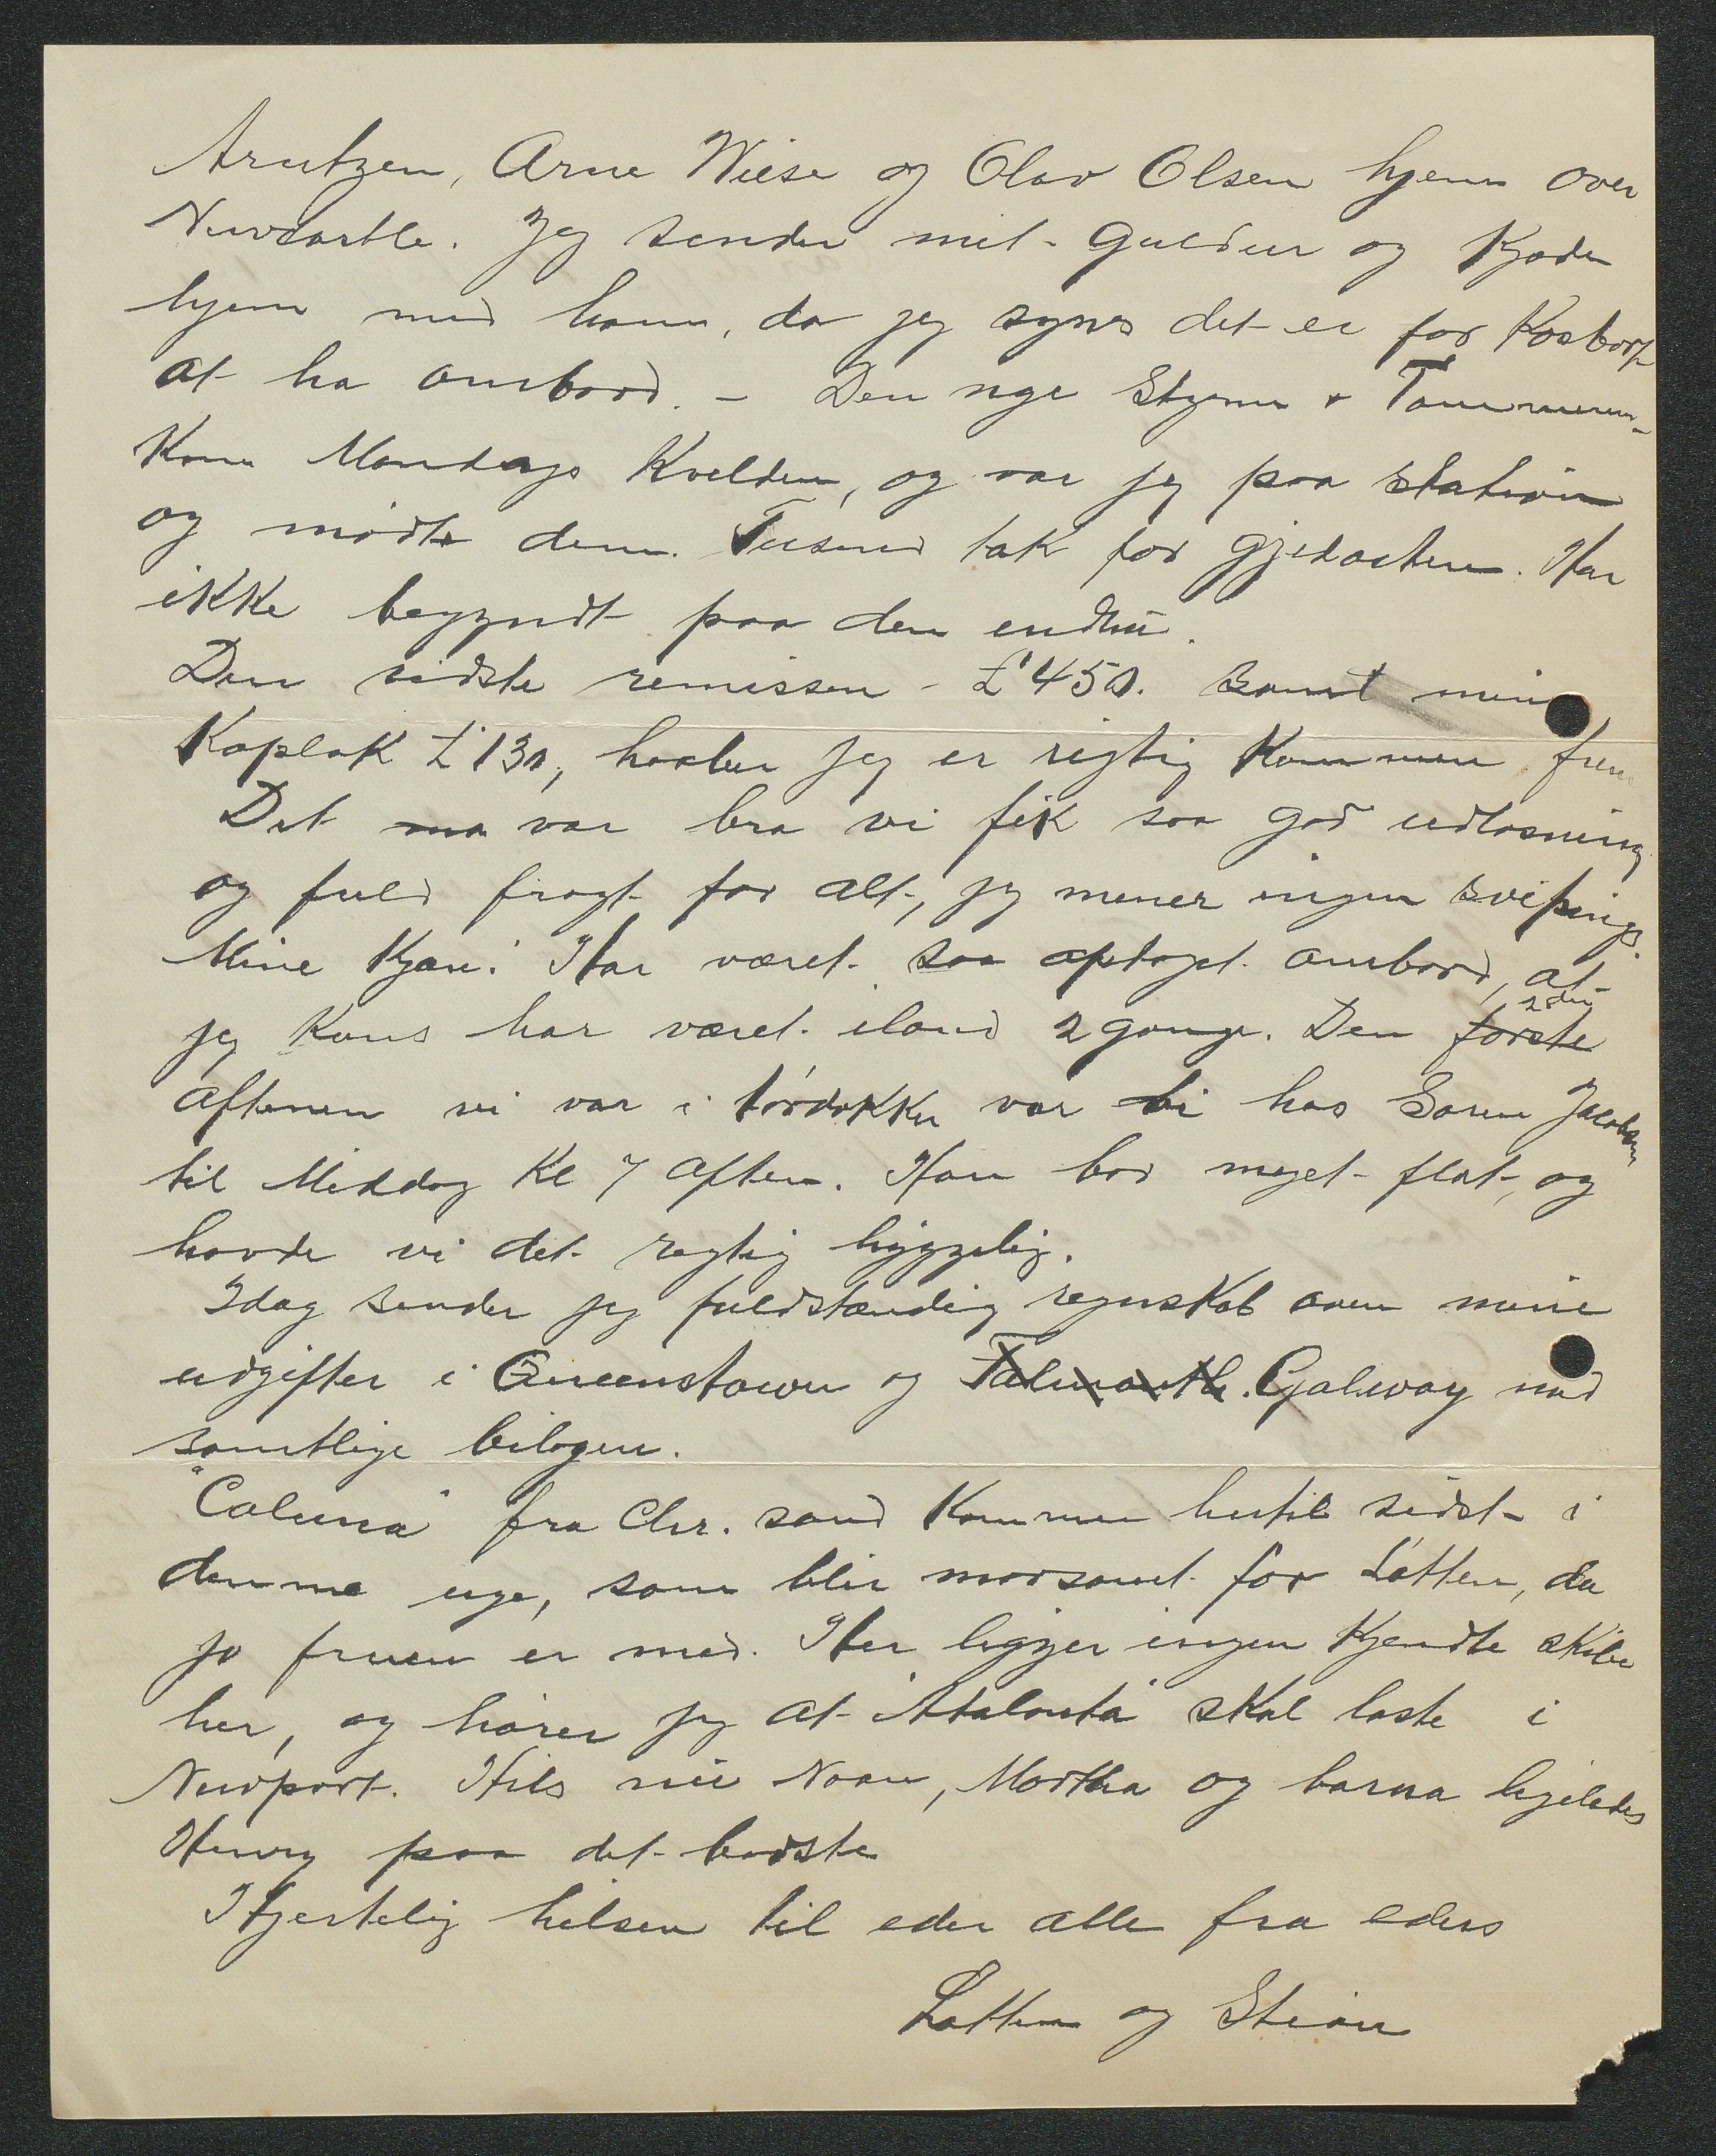 Arntzen, Arne Wiese og Olav Olsen hjem over
Newcastle. Jeg sender mit Guldur og Kjæde
hjem med ham, da jeg synes det er for Kostbart
at ha ombord. - Den nye Styrm & Tømmerm-
Kom Mandags Kvelden, og var jeg paa station
og mødte dem. Tusend tak for gjedosten. Har
ikke begyndt paa den endnu.
Den sidste remissen - £ 450. samt min
Kaplak £ 130, haaber jeg er rigtig Kommen frem
Det var bra vi fik saa god udlosning
og fuld fragt for alt, jeg mener ingen svepings.
Mine Kjære. Har været saa optaget ombord, at
jeg Kuns har været iland 2 gange. Den første 2den
Aftenen vi var i tørdokken var vi hos Søren Jacobsen
til Middag Kl 7 aften. Han bor meget flot, og
havde vi det rigtig hyggelig.
Idag sender jeg fuldstændig regnskab over mine
udgifter i Queenstown og Falmouth. Galway med
samtlige bilager.
"Caluna" fra Chr. sand Kommer hertil sidst i
denne uge, som blir morsomt for Låtten, da
jo fruen er med. Her ligger ingen Kjendte skibe
her, og hører jeg at "Atalanta" skal laste i
Newport. Hils nu Naan, Martha og barna ligeledes
Henry paa det bedste
Hjertelig hilsen til eder alle fra eders
Låtten og Stian